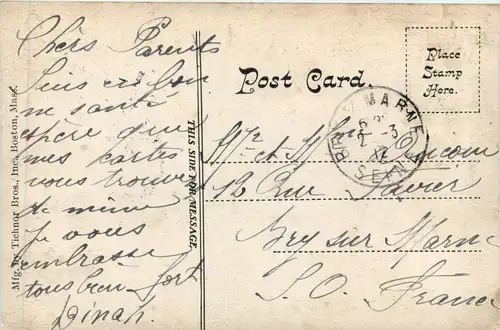 Chers Parents
Suis en bonne santé
espère que
mes cartes
vous trouve
de même
Je vous
embrasse
tous bien fort
Dinah.
THIS SIDE FOR MESSAGE
Mfg. by Tichnor Bros., Inc., Boston, Mass.
Post Card.
Place
Stamp
Here.
BRY S MARNE
SEINE
Mr et Mme
12 Rue
Bry sur Marne
S.O. France